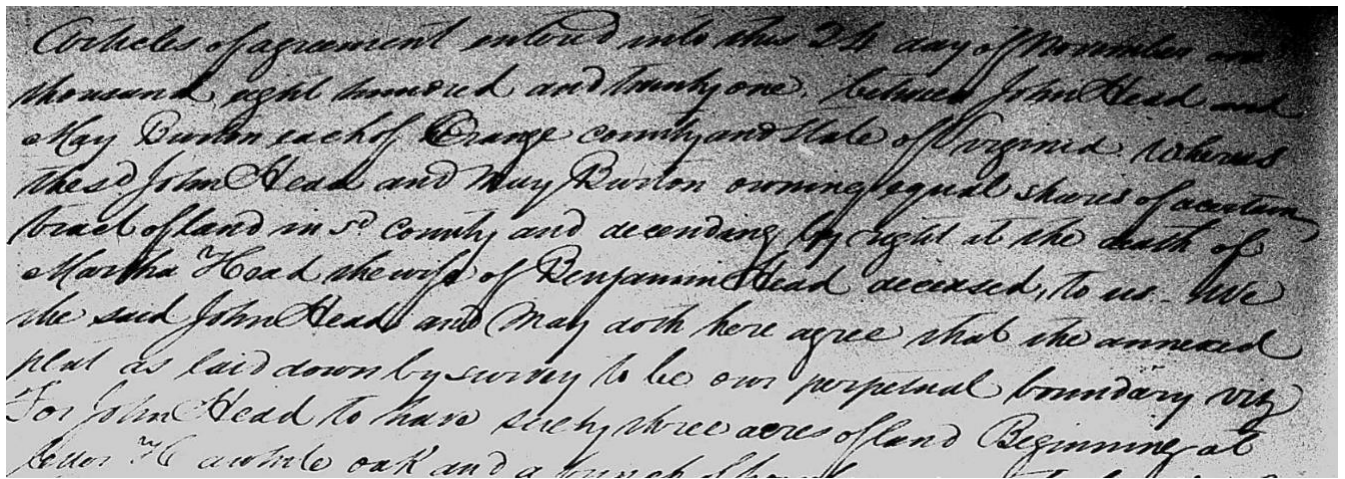 Articles of agreement entered into this 24 day of November one
thousand eight hundred and twenty one. between John Head and
May Burton each of Orange county and State of Virginia. Whereas
the sd John Head and May Burton owning equal shares of a certain
tract of land in sd county and decending by right at the death of
Martha Head the wife of Benjamin Head deceased, to us. We
the said John Head and May doth here agree that the annexed
plat as laid down by survey to be our perpetual boundary viz
For John Head to have sixty three acres of land Beginning at
letter H a white oak and a bunch of